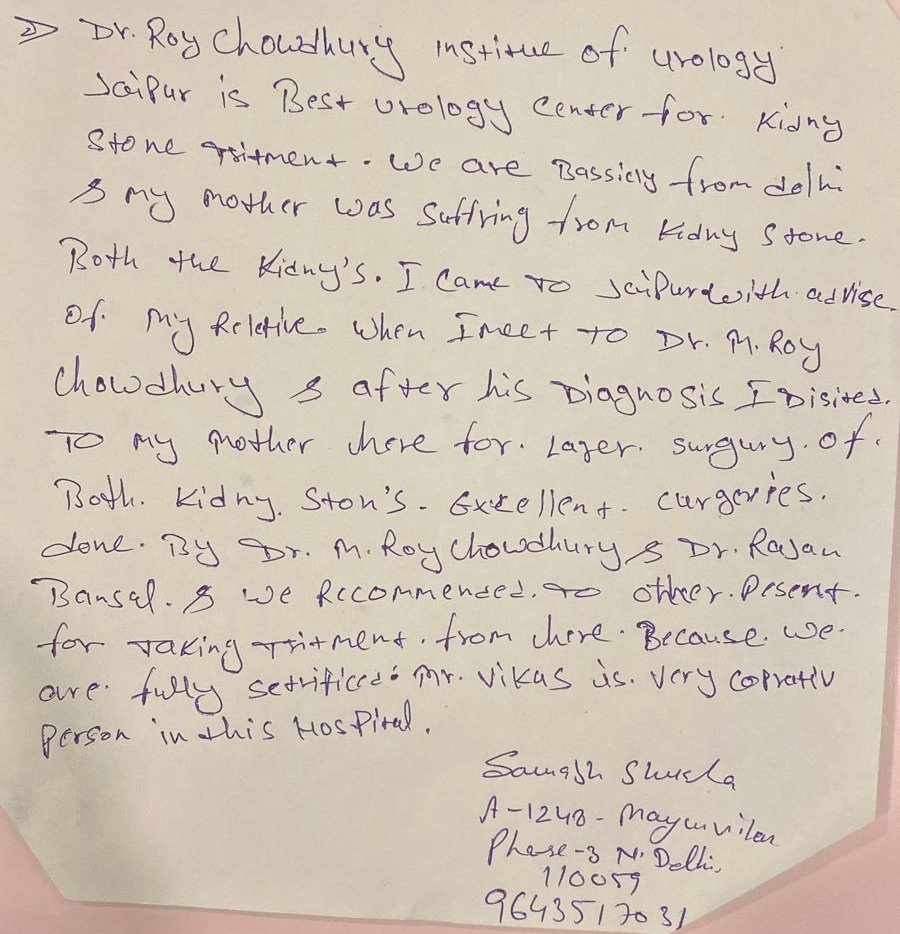 2) Dr. Roy Chowdhury institue of urology
Jaipur is Best urology center for. Kidny
Stone Tritment. We are Bassicly from delhi
& my mother was suffring from Kidny Stone.
Both the Kidny's. I came to Jaipur with advise
of. my Reletive. when I meet to Dr. M. Roy
Chowdhury & after his Diagnosis I Disited.
To my mother here for. Lazer. surgury. of.
Both. Kidny. Ston's. Excellent. curgeries.
done. By Dr. M. Roy Chowdhury & Dr. Rajan
Bansal. & we Recommended. to other. Pesent.
for Taking Tritment. from here. Because. we.
are. fully setrificed. Mr. Vikas is. very coprativ
person in this Hospital.
Shukla
A-1248-
Phase-3 N. Delhi.
110059
9643517031